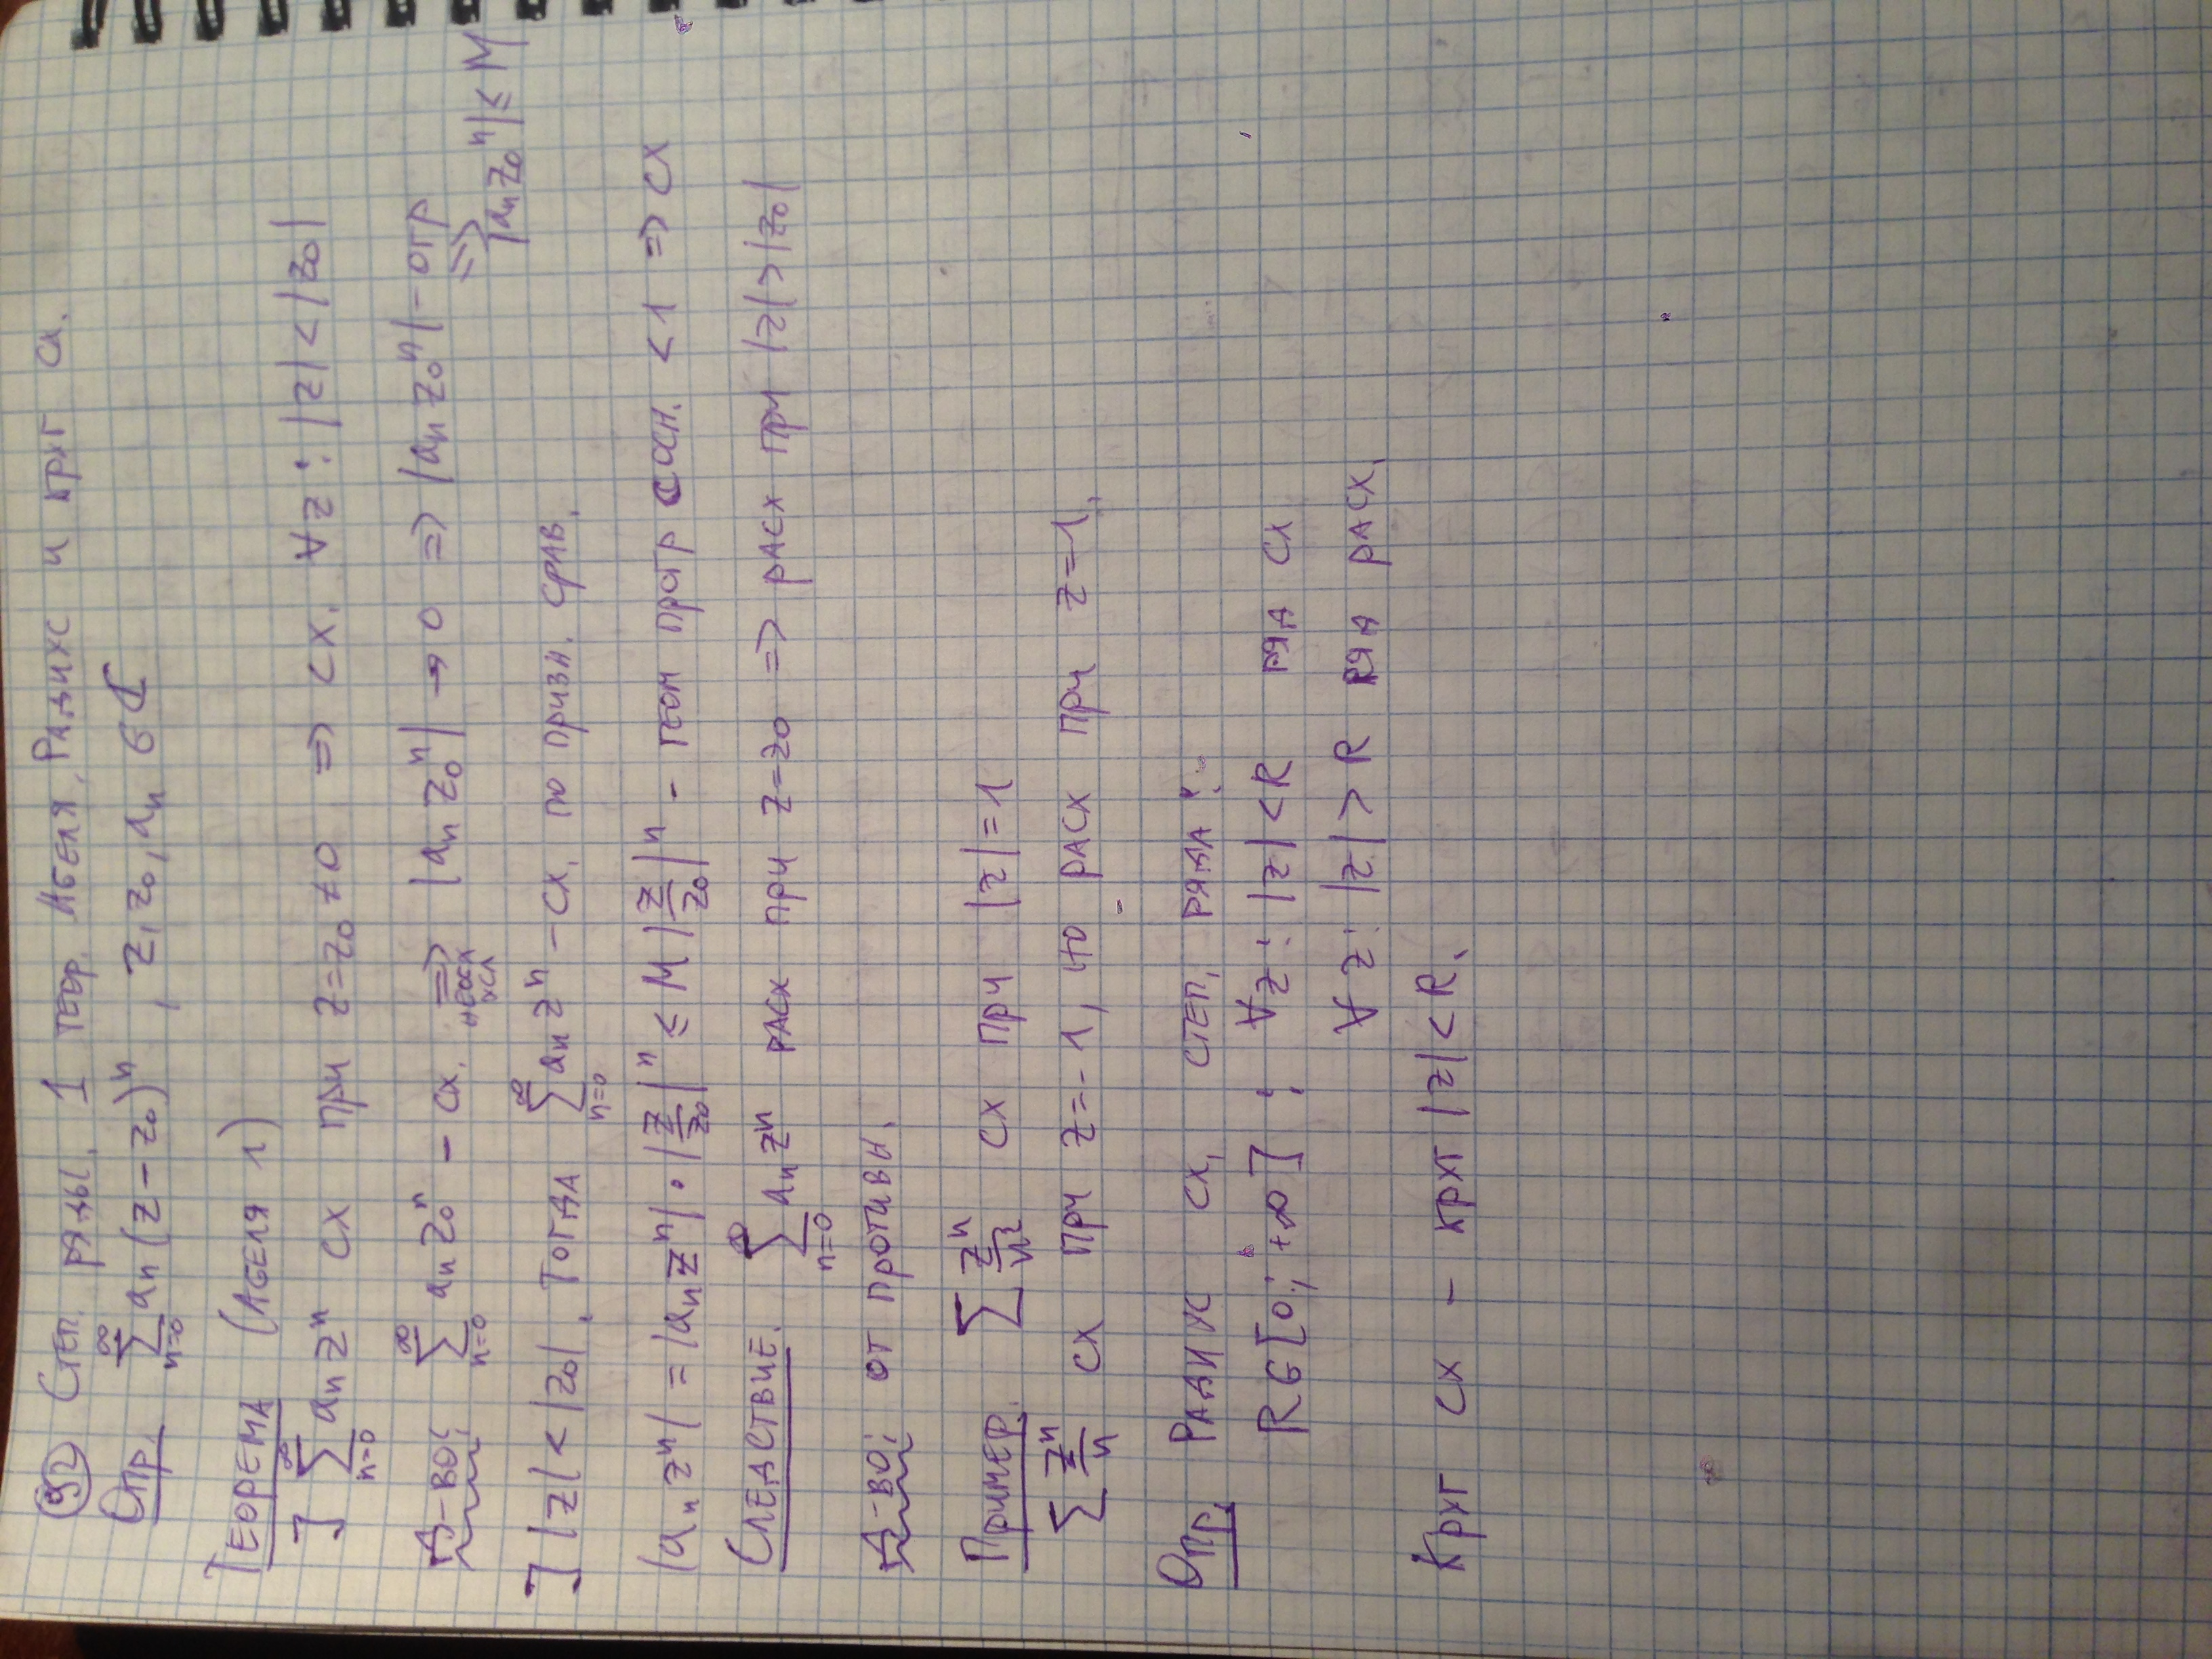 92 Степ. ряды. 1 теор. Абеля. Радиус и круг сх.
Опр. ∑_{n=0}^{∞} a_n (z - z_0)^n , z, z_0, a_n ∈ ℂ
Теорема (Абеля 1)
] ∑_{n=0}^{∞} a_n z^n сх при z = z_0 ≠ 0 => сх. ∀z : |z| < |z_0|
Д-во: ∑_{n=0}^{∞} a_n z_0^n - сх. => необх усл |a_n z_0^n| → 0 => |a_n z_0^n| - огр
=> |a_n z_0^n| ≤ M
] |z| < |z_0|. Тогда ∑_{n=0}^{∞} a_n z^n - сх. по призн. срав.
|a_n z^n| = |a_n z^n| · |z/z_0|^n ≤ M |z/z_0|^n - геом прогр с осн. < 1 => сх
Следствие. ∑_{n=0}^{∞} a_n z^n расх при z = z_0 => расх при |z| > |z_0|
Д-во: от противн.
Пример. ∑ z^n/n^2 сх при |z| = 1
∑ z^n/n сх при z = -1, но расх при z = 1.
Опр. Радиус сх. степ. ряда:
R ∈ [0; +∞] : ∀z : |z| < R ряд сх
∀z : |z| > R ряд расх.
Круг сх - круг |z| < R.